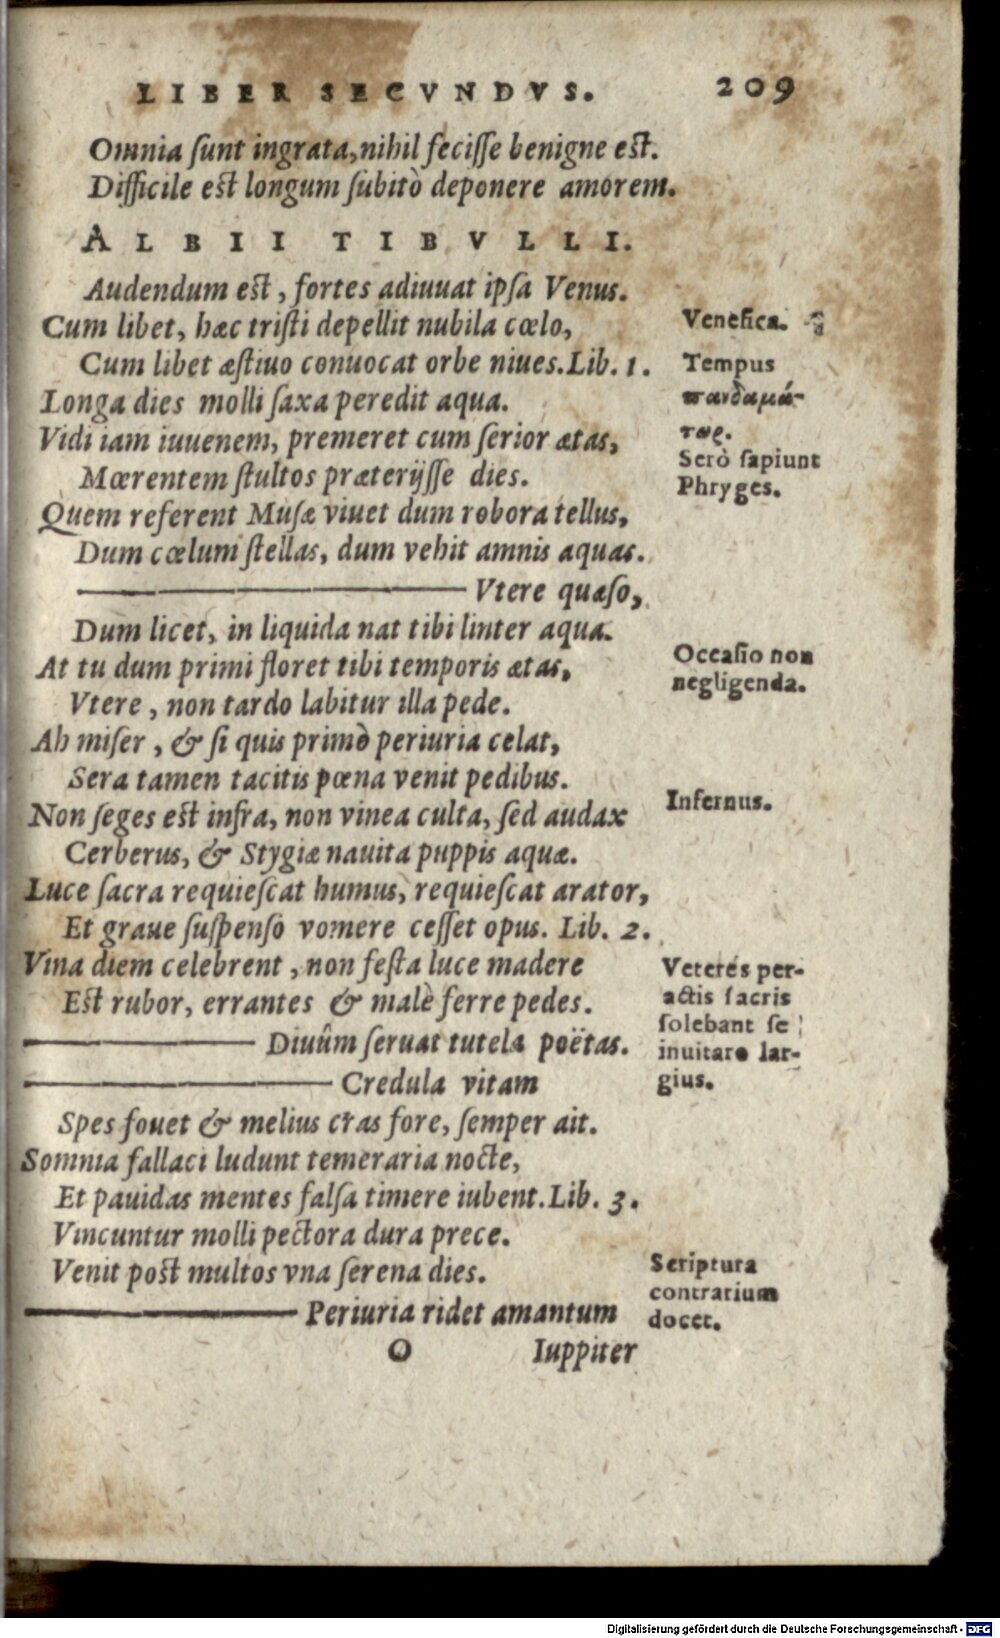 LIBER SECVNDVS. 209
Omnia sunt ingrata, nihil fecisse benigne est.
Difficile est longum subitò deponere amorem.
ALBII TIBVLLI.
Audendum est, fortes adiuuat ipsa Venus.
Cum libet, hæc tristi depellit nubila cœlo,
Venefica.
Cum libet æstiuo conuocat orbe niues. Lib. 1.
Tempus
Longa dies molli saxa peredit aqua.
πανδαμά-
Vidi iam iuuenem, premeret cum serior ætas,
τωρ.
Serò sapiunt
Mœrentem stultos præterijsse dies.
Phryges.
Quem referent Musæ viuet dum robora tellus,
Dum cœlum stellas, dum vehit amnis aquas.
Vtere quæso,
Dum licet, in liquida nat tibi linter aqua.
At tu dum primi floret tibi temporis ætas,
Occasio non
negligenda.
Vtere, non tardo labitur illa pede.
Ah miser, & si quis primò periuria celat,
Sera tamen tacitis pœna venit pedibus.
Non seges est infra, non vinea culta, sed audax
Infernus.
Cerberus, & Stygiæ nauita puppis aquæ.
Luce sacra requiescat humus, requiescat arator,
Et graue suspenso vomere cesset opus. Lib. 2.
Vina diem celebrent, non festa luce madere
Veteres per-
actis sacris
solebant se
inuitare lar-
gius.
Est rubor, errantes & malè ferre pedes.
Diuûm seruat tutela poëtas.
Credula vitam
Spes fouet & melius cras fore, semper ait.
Somnia fallaci ludunt temeraria nocte,
Et pauidas mentes falsa timere iubent. Lib. 3.
Vincuntur molli pectora dura prece.
Venit post multos vna serena dies.
Scriptura
contrarium
docet.
Periuria ridet amantum
O Iuppiter
Digitalisierung gefördert durch die Deutsche Forschungsgemeinschaft - DFG